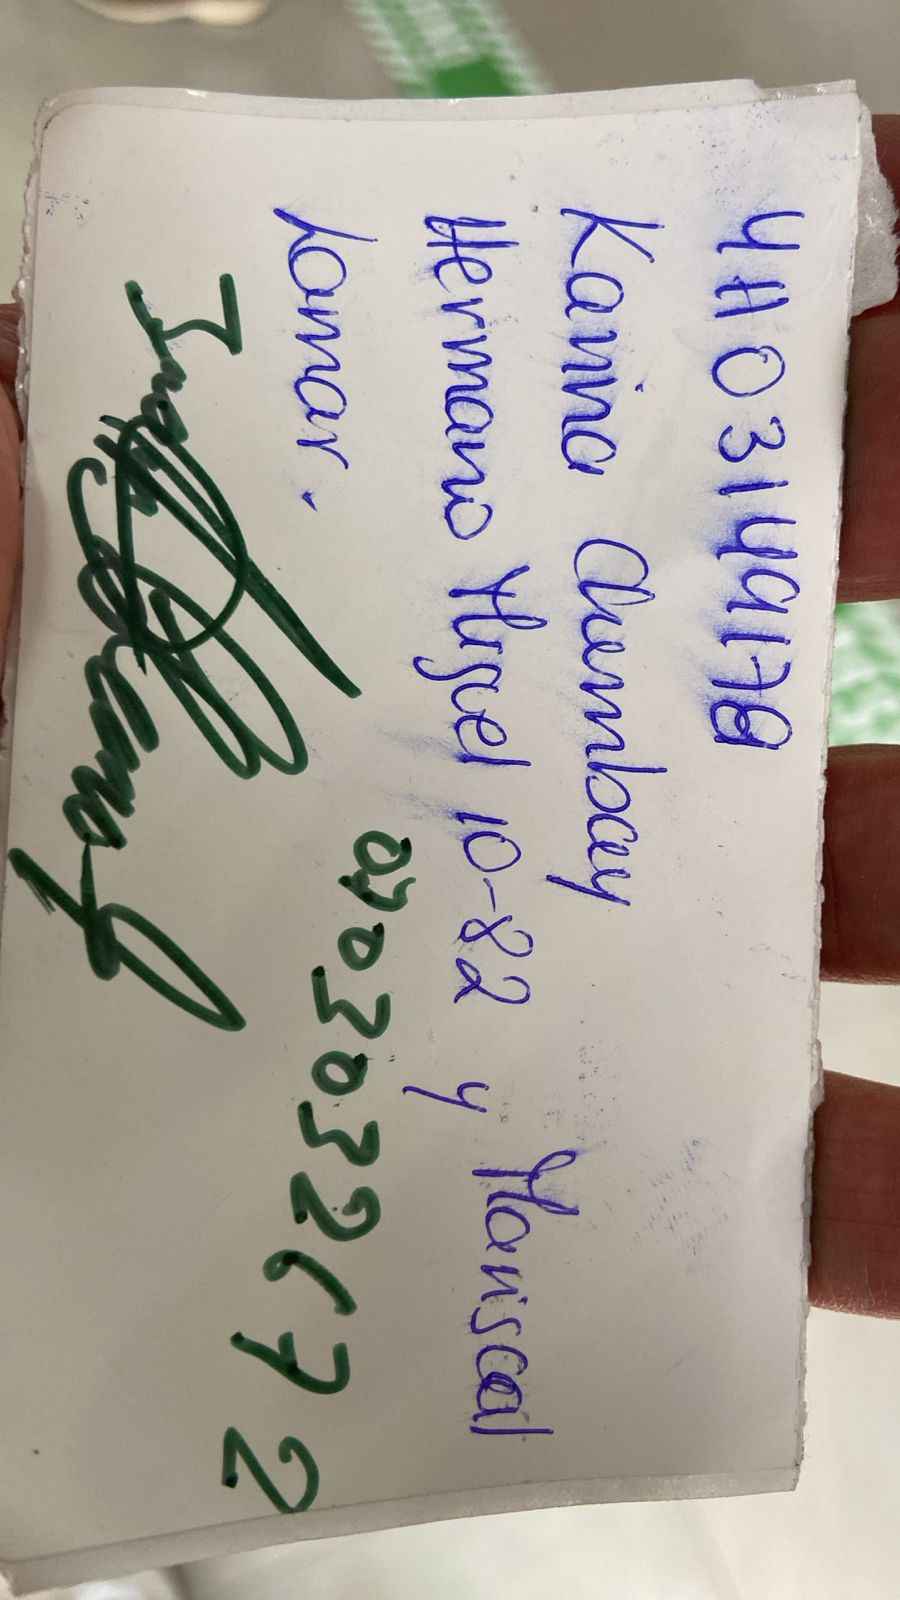 4110314917
Karina Chumbay
Hermano Miguel 10-82 y Mariscal
Lamar.
0703032672